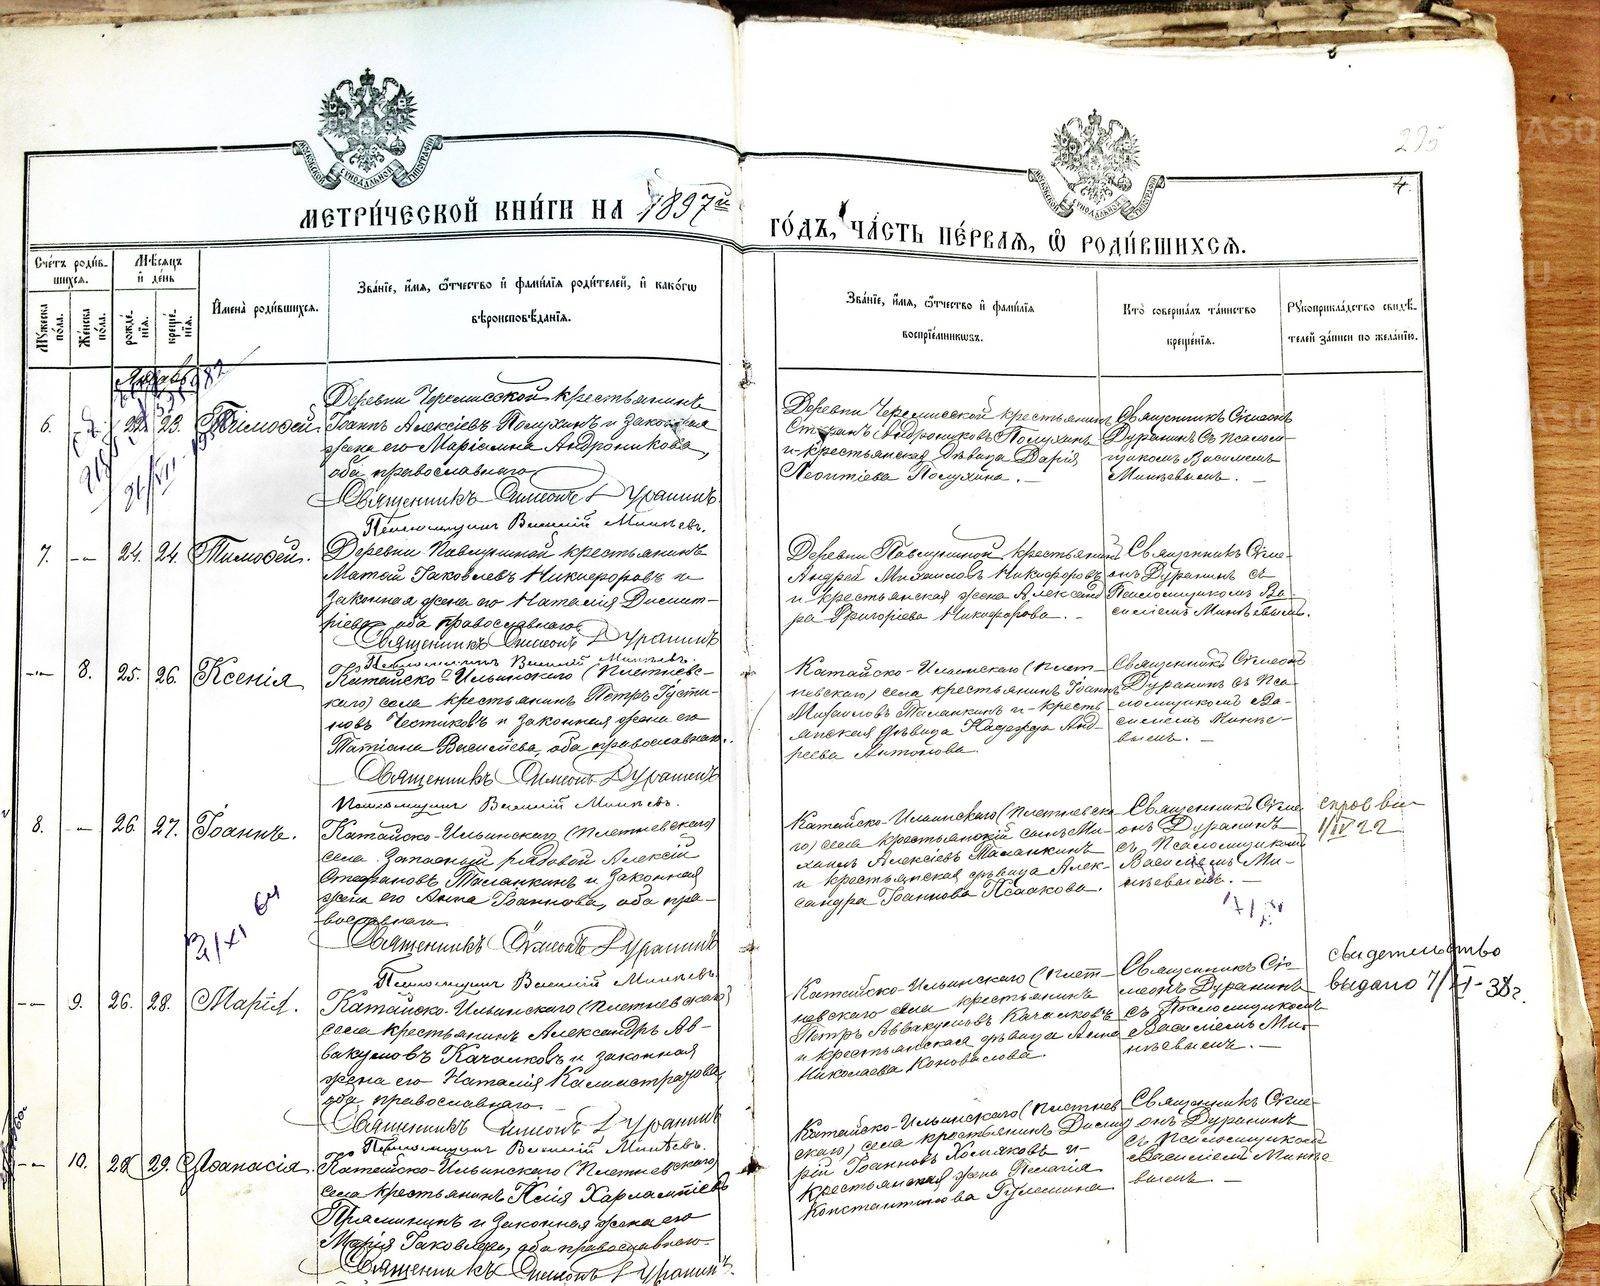 МОСКОВСКОЙ СѴНОДАЛЬНОЙ ТИПОГРАФІИ
МОСКОВСКОЙ СѴНОДАЛЬНОЙ ТИПОГРАФІИ
225
4
МЕТРИ́ЧЕСКОЙ КНИ́ГИ НА 1897й
ГО́ДЪ, ЧА́СТЬ ПЕ́РВАЯ, Ѿ РОДИ́ВШИХСЯ.
Сче́тъ роди́в-
шихся.
Му́жеска по́ла.
Же́нска по́ла.
Мѣ́сяцъ
и҆ де́нь
рожде́-
нїя.
креще́-
нїя.
И҆мена̀ роди́вшихся.
Зва́нїе, и҆́мя, ѻ҆́тчество и҆ фами́лїя роди́телей, и҆ како́гѡ
вѣроисповѣ́данїя.
Зва́нїе, и҆́мя, ѻ҆́тчество и҆ фами́лїя
воспрїе́мникѡвъ.
Кто̀ соверша́лъ та́инство
креще́нїя.
Рꙋкоприкла́дство свидѣ́-
телей за́писи по жела́нїю.
Январь
6. 22. 23. Тимофей.
Деревни Черемисской крестьянинъ
Іоаннъ Алексіевъ Полухинъ и законная
жена его Маріамна Андроникова,
оба православнаго
Священникъ Симеонъ Дуранинъ.
Псаломщикъ Василій Минѣевъ.
Деревни Черемисской крестьянинъ
Стефанъ Андрониковъ Полухинъ
и крестьянская дѣвица Дарія
Леонтіева Полухина. —
Священникъ Симеонъ
Дуранинъ съ псалом-
щикомъ Василіемъ
Минѣевымъ. —
7. -"- 24. 24. Тимофей.
Деревни Павлушиной крестьянинъ
Матѳій Іаковлевъ Никифоровъ и
законная жена его Наталія Димит-
ріева, оба православнаго
Священникъ Симеонъ Дуранинъ
Псаломщикъ Василій Минѣевъ.
Деревни Павлушиной крестьянинъ
Андрей Михаиловъ Никифоровъ
и крестьянская жена Александ
ра Григоріева Никифорова. —
Священникъ Симе-
онъ Дуранинъ съ
Псаломщикомъ Ва-
силіемъ Минѣевымъ.
-"- 8. 25. 26. Ксенія
Катайско-Ильинскаго (Плетнев-
скаго) села крестьянинъ Петръ Іусти-
новъ Честиковъ и законная жена его
Татіана Василіева, оба православнаго.
Священникъ Симеонъ Дуранинъ
Псаломщикъ Василій Минѣевъ.
Катайско-Ильинскаго (Плет-
невскаго) села крестьянинъ Іоаннъ
Михаиловъ Таланкинъ и кресть-
янская дѣвица Надежда Анд-
реева Антонова.
Священникъ Симеонъ
Дуранинъ съ Пса-
ломщикомъ Ва-
силіемъ Минѣе-
вымъ. —
8. -"- 26. 27. Іоаннъ.
Катайско-Ильинскаго (Плетневскаго)
села запасный рядовой Алексій
Стефановъ Таланкинъ и законная
жена его Анна Іоаннова, оба пра-
вославнаго.
Священникъ Симеонъ Дуранинъ
Псаломщикъ Василій Минѣевъ.
Катайско-Ильинскаго (Плетневска
го) села крестьянскій сынъ Ми-
хаилъ Алексіевъ Таланкинъ
и крестьянская дѣвица Алек-
сандра Іоаннова Исаакова.
Священникъ Симе
онъ Дуранинъ
съ Псаломщикомъ
Василіемъ Ми-
нѣевымъ. —
1/IV 22
2/XI 64
-"- 9. 26. 28. Марія.
Катайско-Ильинскаго (Плетневскаго)
села крестьянинъ Александръ Ав-
вакумовъ Качалковъ и законная
жена его Наталія Каллистратова,
оба православнаго.
Священникъ Симеонъ Дуранинъ
Псаломщикъ Василій Минѣевъ.
Катайско-Ильинскаго (Плет-
невскаго села крестьянинъ
Петръ Аввакумовъ Качалковъ
и крестьянская дѣвица Анна
Николаева Коновалова.
Священникъ Си-
меонъ Дуранинъ
съ Псаломщикомъ
Василіемъ Ми-
нѣевымъ. —
свидетельство
выдано 7/II-38г.
-"- 10. 28 29. Аѳанасія
Катайско-Ильинскаго (Плетневскаго)
села крестьянинъ Илія Харлампіевъ
Пряминъ и законная жена его
Марія Іаковлева, оба православнаго.
Священникъ Симеонъ Дуранинъ.
Катайско-Ильинскаго (Плетнев
скаго) села крестьянинъ Дмит
рій Іоанновъ Хомяковъ и
крестьянская жена Пелагія
Константинова Гулемина
Священникъ Симе-
онъ Дуранинъ
съ Псаломщикомъ
Василіемъ Минѣе
вымъ —